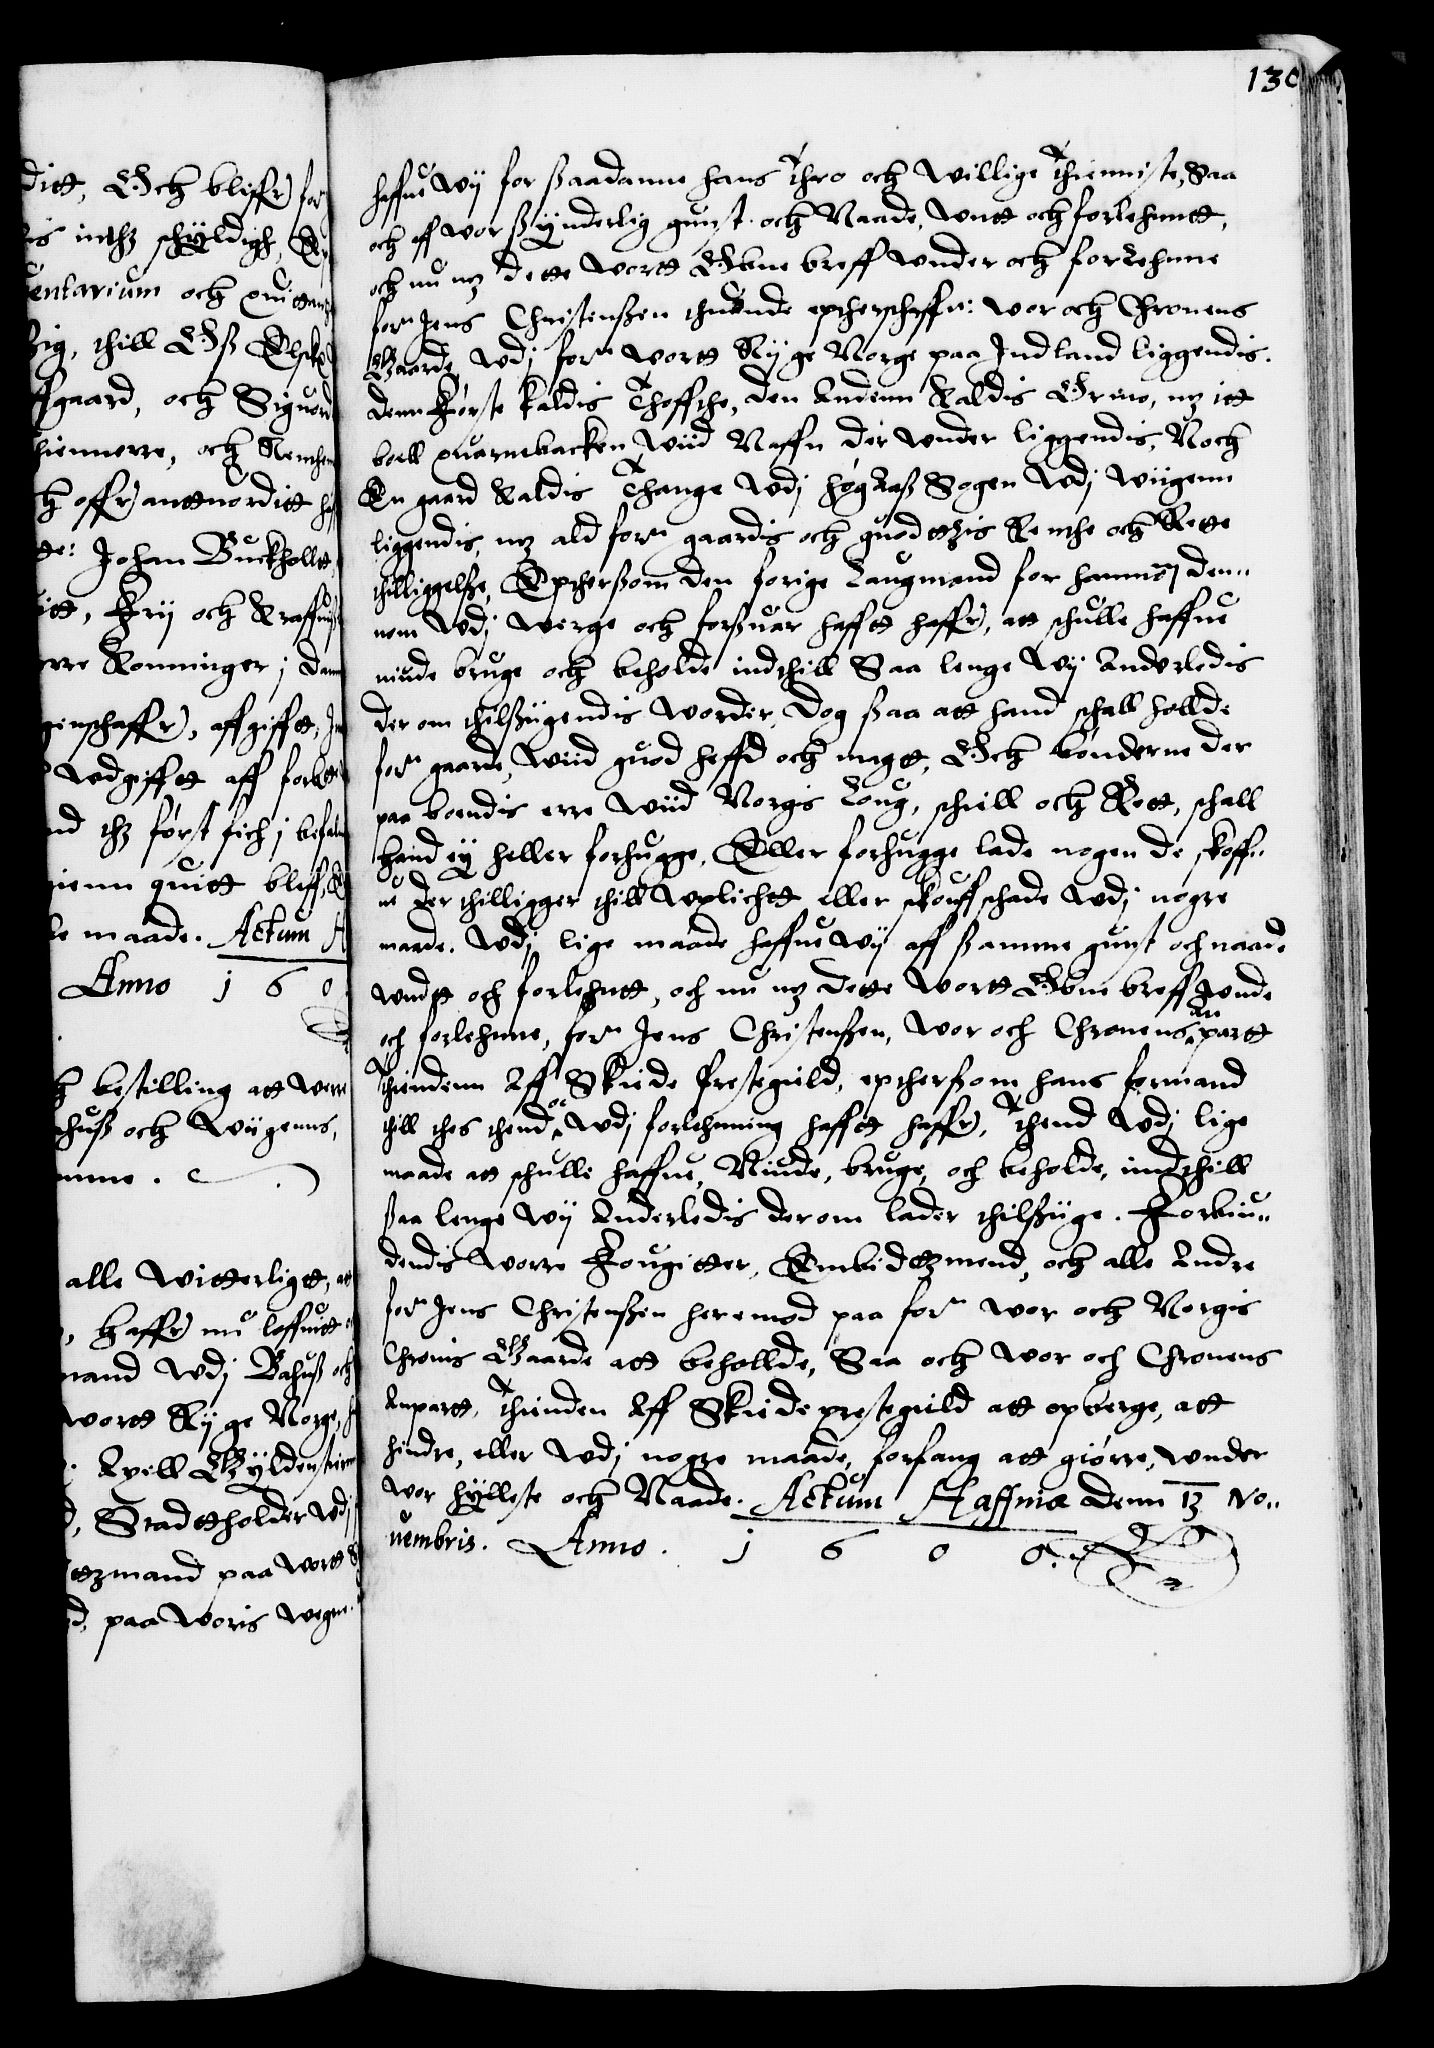 130
ditt, Och bliffr for
is inthz schÿldigh,
uentarium och quittantz
ßig, thill Oß Elske
ffgaard, och Siguord
thiennerre, och Renthen
h offr anttuorditt haf
te: Johan Buckholtt,
itt, Frij och Kraffuiß
erre Konninger j Dan
genschaffr, affgifftt,
wdgifftt aff forbete
nd thz først fich j befal
gienn quitt bliff,
le maade. Actum H
Anno 1 6 0
h bestilling att were
huß och Wiigenns,
mme.
alle witterligtt, att
, haffr nu loffuitt
mand wdj Bahuß och
wortt Rÿge Norge,
Axell Gÿldenstiern
, Stadttholder wdj
ttzmand paa wortt
d, paa woris wegne.
haffue wÿ for ßaadanne hans Thro och willige Thienniste, Saa
och aff wor ßÿnderlig gunst och Naade, wntt och forlehnntt,
och nu mz dette wortt Obne breff wnder och forlehnne
forn Jens Christenßen thuende epterschrffn: wor och Chronens
Gaarde, wdj forn wortt Rÿge Norge paa Indland liggendis.
denn Første kaldis Thoffthe, den Andenn Kaldis Grino, mz itt
boell quarnebacken wiid Naffn der wnder liggendis, Noch
En gaard Kaldis Thange wdj høgAaß Sogen wdj wiigenn
liggendis, mz ald forn gaardis och guodttzis Renthe och Rette
thilliggelße, Epterßom den forige Laugmand for hannom den„
nem wdj werge och forßuar hafftt haffr, att schulle haffue
niude bruge och beholde indthill Saa lenge wÿ Anderledis
der om thilßiigendis worder, Dog ßaa att hand schall hollde
forn gaarde, wiid guod heffd och magtt, Och bønderne der
paa boendis erre wiid Norgis Loug, schiell och Rett, schall
hand eÿ heller forhugge, Eller forhugge lade nogen de skoff„
ue der thilligger thill wplichtt eller skouff schade wdj nogre
maade. wdj lige maade haffue wÿ aff ßamme gunst och naade
wndtt och forlehntt, och nu mz dette wortt Obne breff wnde
och forlehnne, forn Jens Christenßen, wor och Chronens an partt
Thiendenn Aff Skiede Prestegield, epterßom hans formand
thill thes thend wdj forlehnning hafftt haffr, Thend wdj lige
maade att schulle haffue, Niude, bruge, och beholde, indthill
ßaa lenge wÿ Anderledis derom lader thilßiige. Forbiu„
dendis worre Fougitter, Embidttzmend, och alle Andre
forn Jens Christenßen heremod paa forn wor och Norgis
Chronis Gaarde att behollde, Saa och wor och Chronens
Anpartt, Thienden Aff Skiede prestegield att opberge, att
hindre, eller wdj nogre maade, forfang att giørre, wnder
wor hÿlleste och Naade. Actum Haffniæ Denn 13 No„
uembris. Anno. 1 6 0 0.